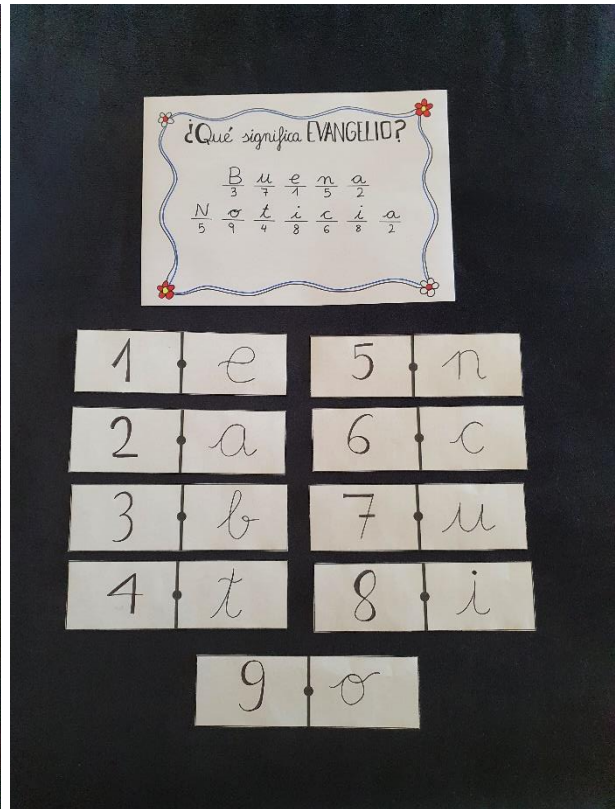 ¿Qué significa EVANGELIO?
B u e n a
3 7 1 5 2
N o t i c i a
5 9 4 8 6 8 2
1 e
5 n
2 a
6 c
3 b
7 u
4 t
8 i
9 o